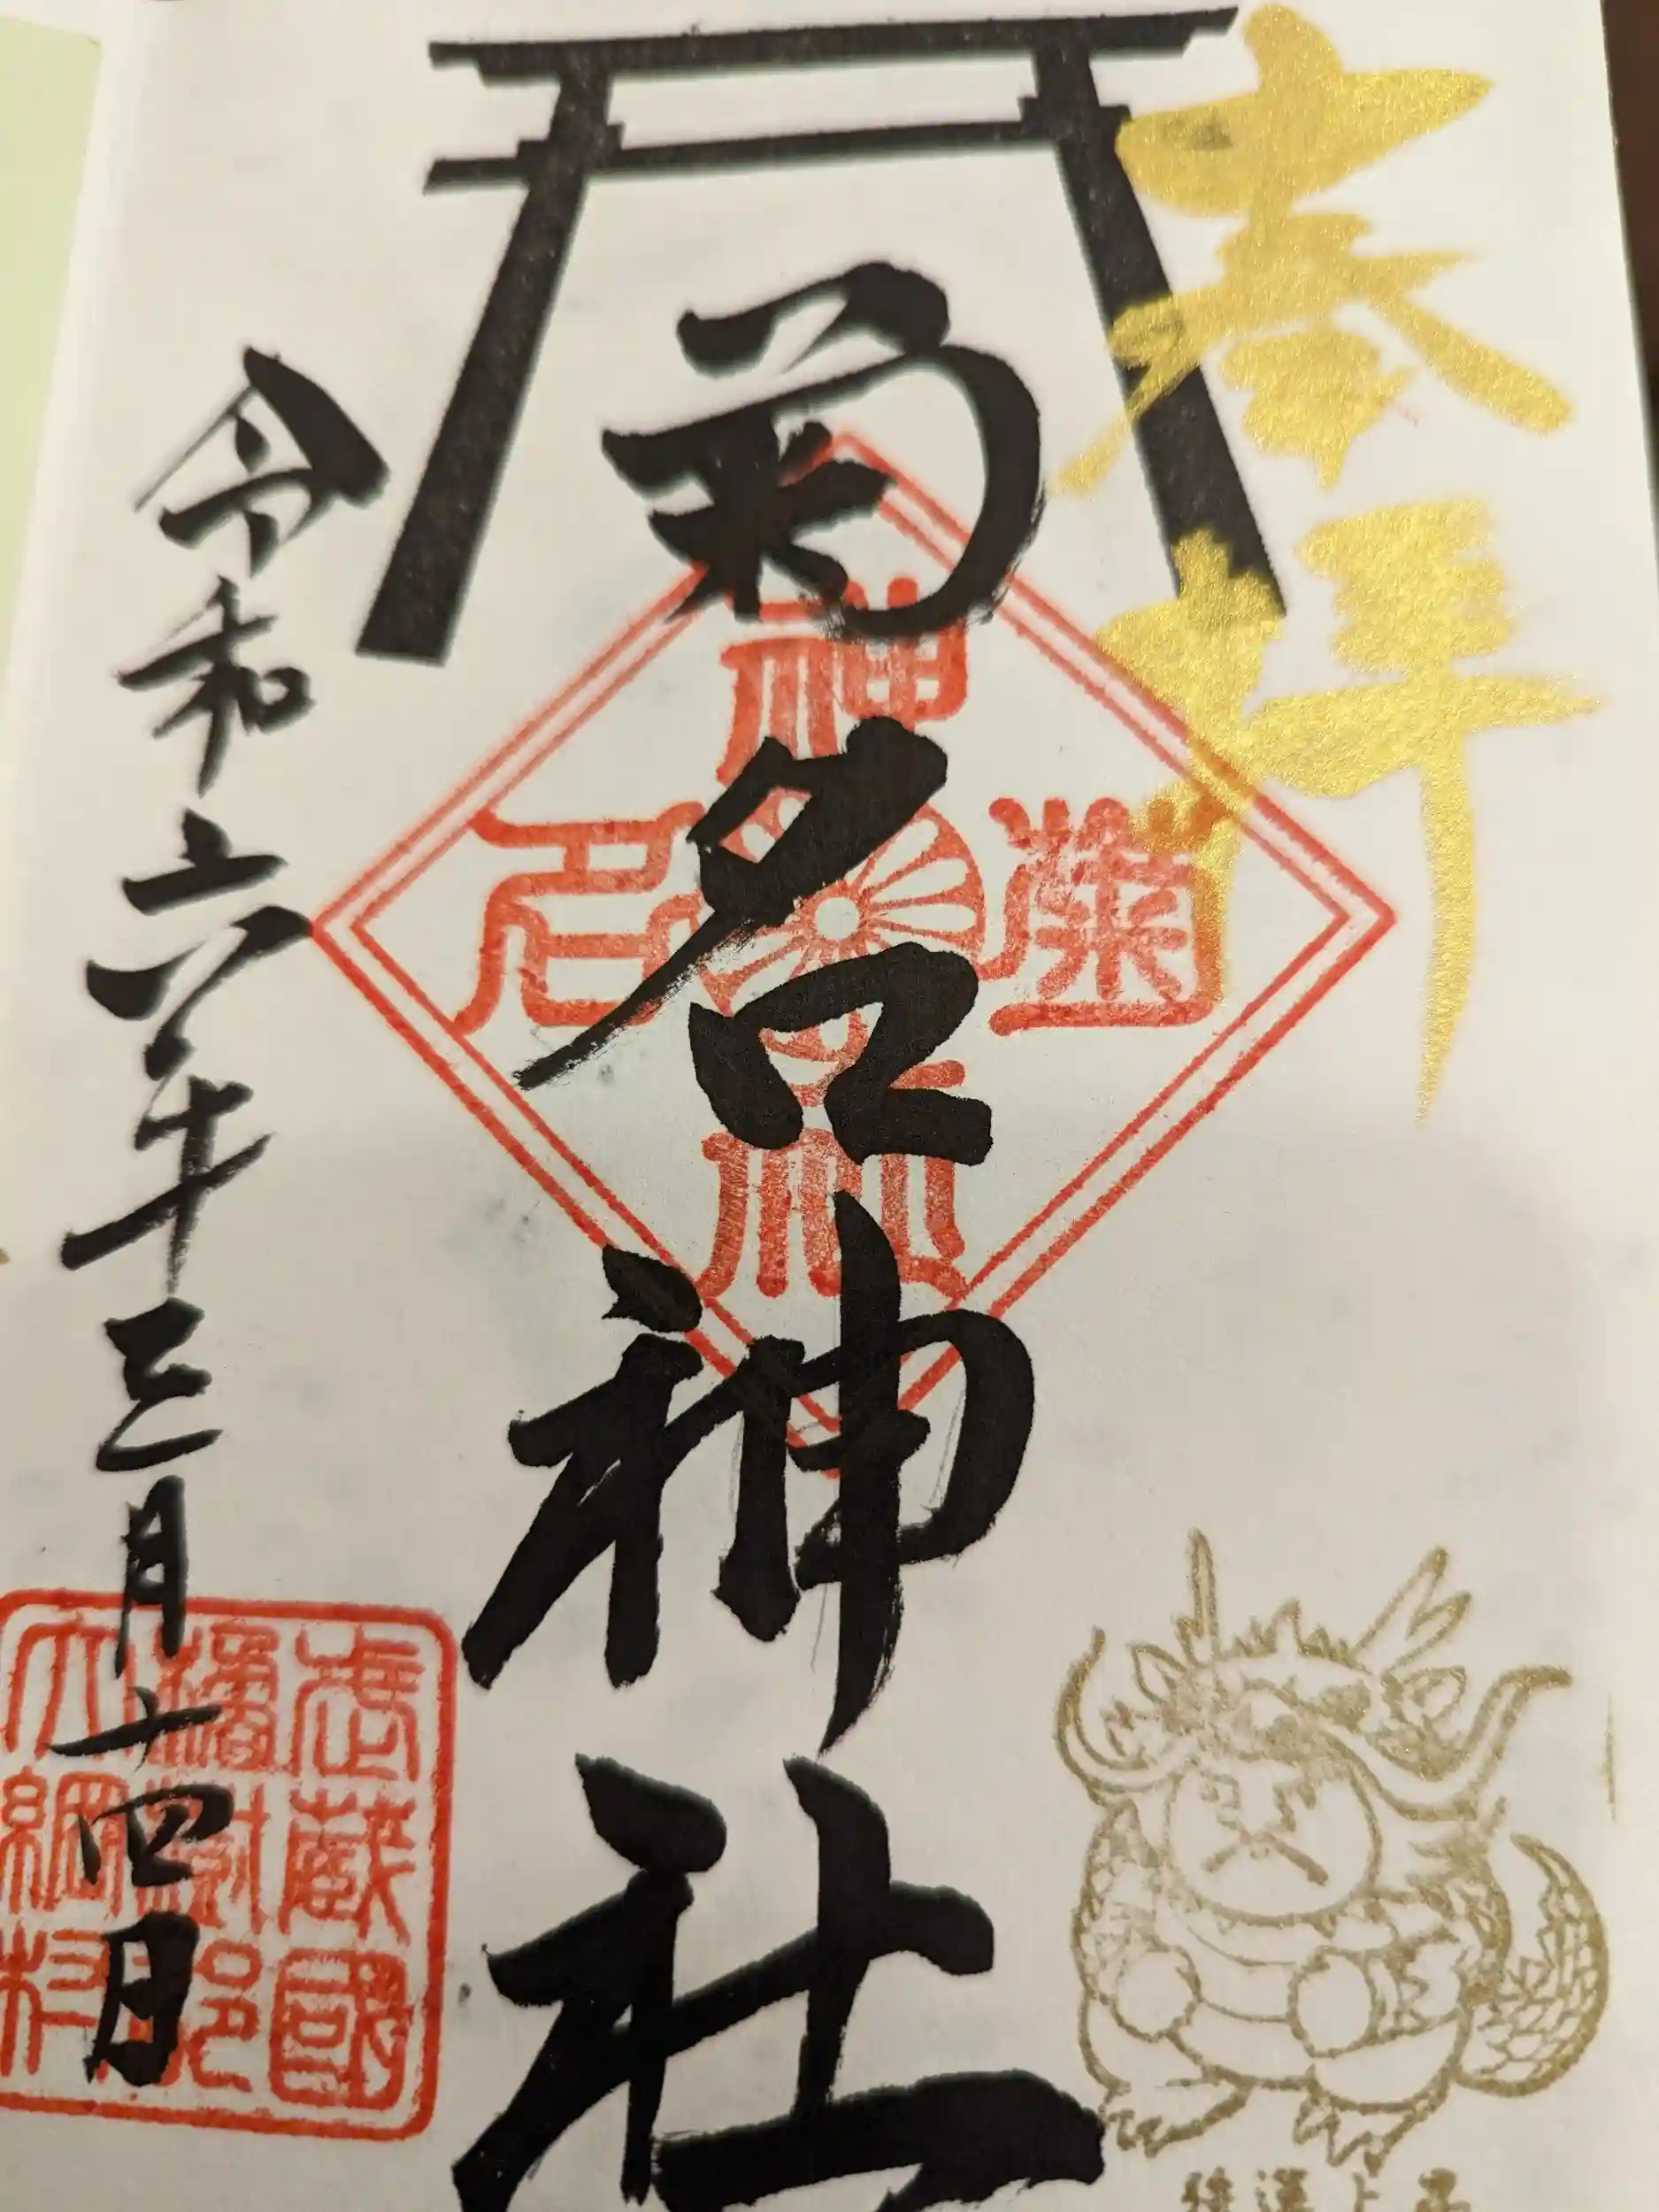 奉拝
菊名神社
菊名神社
令和六年三月十四日
武蔵國
橘樹郡
大綱村